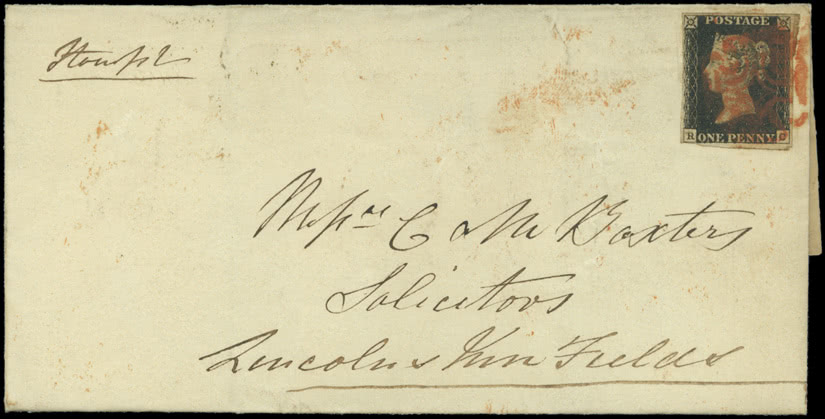 Stamp
POSTAGE
R
ONE PENNY
Messrs C & M Baxters
Solicitors
Lincolns Inn Fields